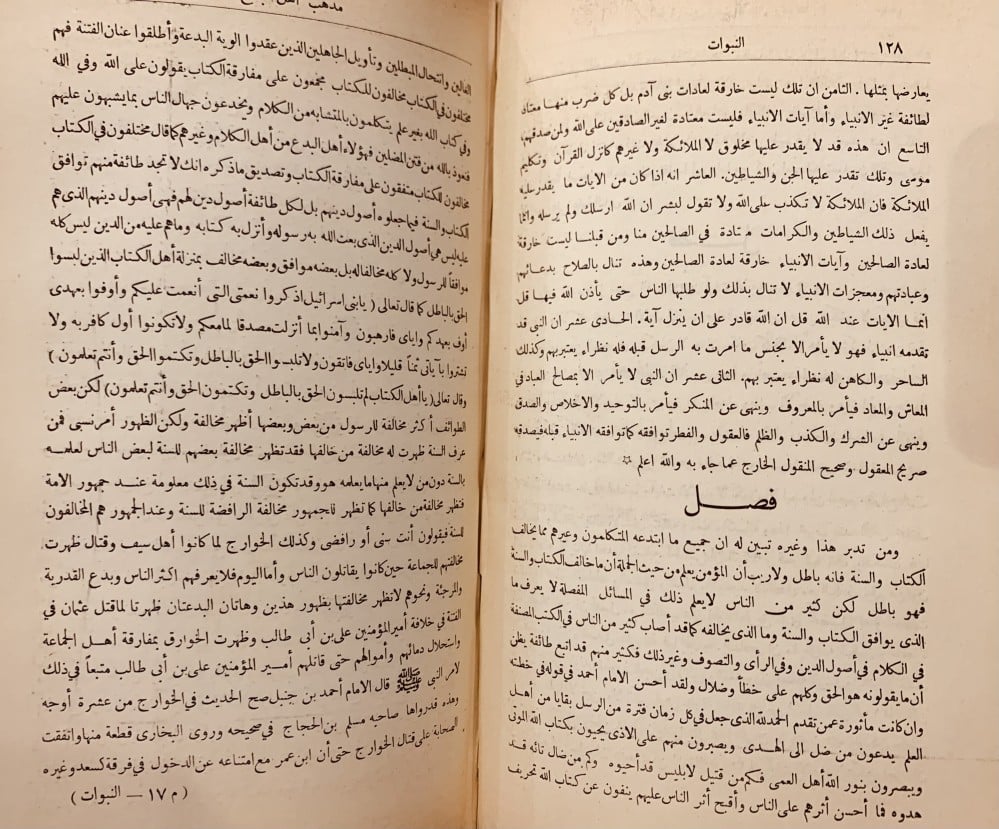 ١٢٨
النبوات
يعارضها بمثلها . الثامن ان تلك ليست خارقة لعادات بنى آدم بل كل ضرب منها معتاد
لطائفة غير الانبياء وأما آيات الانبياء فليست معتادة لغير الصادقين على الله ولمن صدقهم،
التاسع ان هذه قد لا يقدر عليها مخلوق لا الملائكة ولا غيرهم كانزل القرآن وتكليم
موسى وتلك تقدر عليها الجن والشياطين. العاشر انه اذا كان من الآيات ما يقدر عليه
الملائكة فان الملائكة لا تكذب على الله ولا تقول لبشر ان الله ارسلك ولم يرسله وانما
يفعل ذلك الشياطين والكرامات متادة في الصالحين منا ومن قبلنا ليست خارقة
لعادة الصالحين وآيات الانبياء خارقة لعادة الصالحين وهذه تنال بالصلاح بدعائهم
وعبادتهم ومعجزات الانبياء لا تنال بذلك ولو طلبها الناس حتى يأذن الله فيها قل
انما الآيات عند الله قل ان الله قادر على ان ينزل آية . الحادى عشر ان النبى قد
تقدمه انبياء فهو لا يأمر الا بجنس ما امرت به الرسل قبله فله نظراء يعتبر بهم وكذلك
الساحر والكاهن له نظراء يعتبر بهم. الثانى عشر ان النبى لا يأمر الا بمصالح العباد في
المعاش والمعاد فيأمر بالمعروف وينهى عن المنكر فيأمر بالتوحيد والاخلاص والصدق
وينهى عن الشرك والكذب والظلم فالعقول والفطر توافقه كما توافقه الانبياء قبله فيصدقه
صريح المعقول وصحيح المنقول الخارج عما جاء به والله اعلم ☆
فصل
ومن تدبر هذا وغيره تبين له ان جميع ما ابتدعه المتكلمون وغيرهم مما يخالف
الكتاب والسنة فانه باطل ولا ريب أن المؤمن يعلم من حيث الجملة أن ما خالف الكتاب والسنة
فهو باطل لكن كثير من الناس لا يعلم ذلك في المسائل المفصلة لا يعرف ما
الذى يوافق الكتاب والسنة وما الذى يخالفه كما قد أصاب كثير من الناس في الكتب المصنفة
في الكلام في أصول الدين وفي الرأى والتصوف وغير ذلك فكثير منهم قد اتبع طائفة يظن
أن ما يقولونه هو الحق وكلهم على خطأ وضلال ولقد أحسن الامام أحمد في قوله في خطبته
وان كانت مأثورة عمن تقدم الحمد لله الذى جعل في كل زمان فترة من الرسل بقايا من أهل
العلم يدعون من ضل الى الهدى ويصبرون منهم على الاذى يحيون بكتاب الله الموتى
ويبصرون بنور الله أهل العمى فكم من قتيل لابليس قد أحيوه وكم من ضال تائه قد
هدوه فما أحسن أثرهم على الناس وأقبح أثر الناس عليهم ينفون عن كتاب الله تحريف
الغالين وانتحال المبطلين وتأويل الجاهلين الذين عقدوا الوية البدعة وأطلقوا عنان الفتنة فهم
مختلفون في الكتاب مخالفون للكتاب مجمعون على مفارقة الكتاب يقولون على الله وفي الله
وفي كتاب الله بغير علم يتكلمون بالمتشابه من الكلام ويخدعون جهال الناس بما يشبهون عليهم
فنعوذ بالله من فتن المضلين فهؤلاء أهل البدع من أهل الكلام وغيرهم كما قال مختلفون في الكتاب
مخالفون للكتاب متفقون على مفارقة الكتاب وتصديق ما ذكره انك لا تجد طائفة منهم توافق
الكتاب والسنة فيما جعلوه أصول دينهم بل لكل طائفة أصول دين لهم فهى أصول دينهم الذى هم
عليه ليس هى أصول الدين الذى بعث الله به رسوله وأنزل به كتابه وما هم عليه من الدين ليس كله
موافقاً للرسول ولا كله مخالفا له بل بعضه موافق وبعضه مخالف بمنزلة أهل الكتاب الذين لبسوا
الحق بالباطل كما قال تعالى ( يا بنى اسرائيل اذكروا نعمتى التى أنعمت عليكم وأوفوا بعهدى
أوف بعهدكم واياى فارهبون وآمنوا بما أنزلت مصدقا لما معكم ولا تكونوا أول كافر به ولا
تشتروا بآياتى ثمناً قليلا واياى فاتقون ولا تلبسوا الحق بالباطل وتكتموا الحق وأنتم تعلمون )
وقال تعالى ( يا أهل الكتاب لم تلبسون الحق بالباطل وتكتمون الحق وأنتم تعلمون ) لكن بعض
الطوائف أكثر مخالفة للرسول من بعض وبعضها أظهر مخالفة ولكن الظهور أمر نسبى فمن
عرف السنة ظهرت له مخالفة من خالفها فقد تظهر مخالفة بعضهم للسنة لبعض الناس لعلمه
بالسنة دون من لا يعلم منها ما يعلمه هو وقد تكون السنة في ذلك معلومة عند جمهور الامة
فتظهر مخالفة من خالفها كما تظهر للجمهور مخالفة الرافضة للسنة وعند الجمهور هم المخالفون
للسنة فيقولون أنت سنى أو رافضى وكذلك الخوارج لما كانوا أهل سيف وقتال ظهرت
مخالفتهم للجماعة حين كانوا يقاتلون الناس وأما اليوم فلا يعرفهم اكثر الناس وبدع القدرية
والمرجئة ونحوهم لا تظهر مخالفتها بظهور هذين وهاتان البدعتان ظهرتا لما قتل عثمان في
الفتنة في خلافة أمير المؤمنين على بن أبى طالب وظهرت الخوارق بمفارقة أهل الجماعة
واستحلال دمائهم وأموالهم حتى قاتلهم أمير المؤمنين على بن أبى طالب متبعاً في ذلك
لامر النبى ﷺ قال الامام أحمد بن حنبل صح الحديث في الخوارج من عشرة أوجه
وهذه قد رواها صاحبه مسلم بن الحجاج في صحيحه وروى البخارى قطعة منها واتفقت
الصحابة على قتال الخوارج حتى أن ابن عمر مع امتناعه عن الدخول في فرقة كسعد وغيره
( م ١٧ — النبوات )